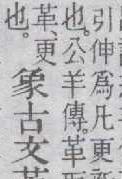 引伸爲凡更
也。公羊傳。革
革、更
也。
象古文